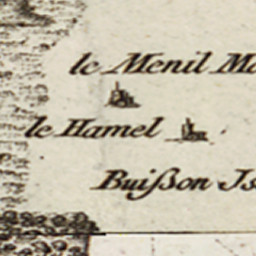 le Menil Ma
le Hamel
Buiſson Is